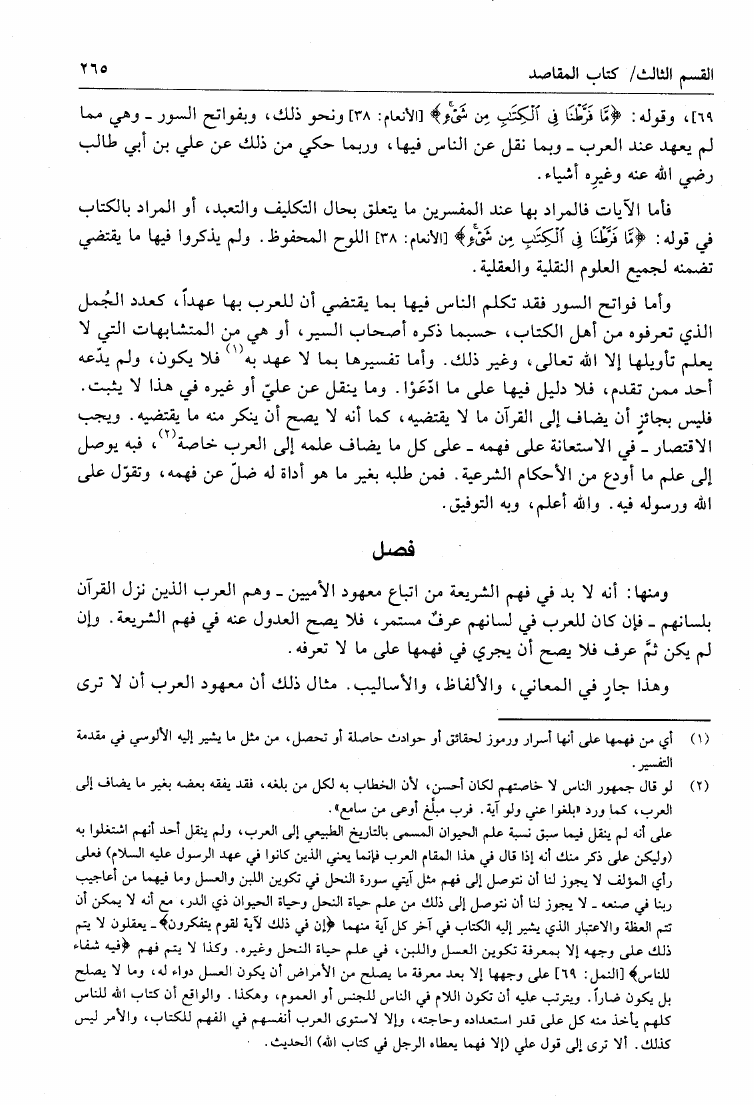 القسم الثالث/ كتاب المقاصد
٢٦٥
٦٩]، وقوله: ﴿مَّا فَرَّطْنَا فِى ٱلْكِتَـٰبِ مِن شَىْءٍ﴾ [الأنعام: ٣٨] ونحو ذلك، وبفواتح السور ـ وهي مما
لم يعهد عند العرب ـ وبما نقل عن الناس فيها، وربما حكي من ذلك عن علي بن أبي طالب
رضي الله عنه وغيره أشياء.
فأما الآيات فالمراد بها عند المفسرين ما يتعلق بحال التكليف والتعبد، أو المراد بالكتاب
في قوله: ﴿مَّا فَرَّطْنَا فِى ٱلْكِتَـٰبِ مِن شَىْءٍ﴾ [الأنعام: ٣٨] اللوح المحفوظ. ولم يذكروا فيها ما يقتضي
تضمنه لجميع العلوم النقلية والعقلية.
وأما فواتح السور فقد تكلم الناس فيها بما يقتضي أن للعرب بها عهداً، كعدد الجُمل
الذي تعرفوه من أهل الكتاب، حسبما ذكره أصحاب السير، أو هي من المتشابهات التي لا
يعلم تأويلها إلا الله تعالى، وغير ذلك. وأما تفسيرها بما لا عهد به(١) فلا يكون، ولم يدّعه
أحد ممن تقدم، فلا دليل فيها على ما ادّعَوْا. وما ينقل عن عليّ أو غيره في هذا لا يثبت.
فليس بجائزٍ أن يضاف إلى القرآن ما لا يقتضيه، كما أنه لا يصح أن ينكر منه ما يقتضيه. ويجب
الاقتصار ـ في الاستعانة على فهمه ـ على كل ما يضاف علمه إلى العرب خاصة(٢)، فبه يوصل
إلى علم ما أودع من الأحكام الشرعية. فمن طلبه بغير ما هو أداة له ضلّ عن فهمه، وتقوّل على
الله ورسوله فيه. والله أعلم، وبه التوفيق.
فصل
ومنها: أنه لا بد في فهم الشريعة من اتباع معهود الأميين ـ وهم العرب الذين نزل القرآن
بلسانهم ـ فإن كان للعرب في لسانهم عرفٌ مستمر، فلا يصح العدول عنه في فهم الشريعة. وإن
لم يكن ثمَّ عرف فلا يصح أن يجري في فهمها على ما لا تعرفه.
وهذا جارٍ في المعاني، والألفاظ، والأساليب. مثال ذلك أن معهود العرب أن لا ترى
(١) أي من فهمها على أنها أسرار ورموز لحقائق أو حوادث حاصلة أو تحصل، من مثل ما يشير إليه الألوسي في مقدمة
التفسير.
(٢) لو قال جمهور الناس لا خاصتهم لكان أحسن، لأن الخطاب به لكل من بلغه، فقد يفقه بعضه بغير ما يضاف إلى
العرب، كما ورد «بلغوا عني ولو آية. فرب مبلَّغ أوعى من سامع».
على أنه لم ينقل فيما سبق نسبة علم الحيوان المسمى بالتاريخ الطبيعي إلى العرب، ولم ينقل أحد أنهم اشتغلوا به
(وليكن على ذكر منك أنه إذا قال في هذا المقام العرب فإنما يعني الذين كانوا في عهد الرسول عليه السلام) فعلى
رأي المؤلف لا يجوز لنا أن نتوصل إلى فهم مثل آيتي سورة النحل في تكوين اللبن والعسل وما فيهما من أعاجيب
ربنا في صنعه ـ لا يجوز لنا أن نتوصل إلى ذلك من علم حياة النحل وحياة الحيوان ذي الدر، مع أنه لا يمكن أن
تتم العظة والاعتبار الذي يشير إليه الكتاب في آخر كل آية منهما ﴿إن في ذلك لآية لقوم يتفكرون﴾ـ يعقلون لا يتم
ذلك على وجهه إلا بمعرفة تكوين العسل واللبن، في علم حياة النحل وغيره. وكذا لا يتم فهم ﴿فيه شفاء
للناس﴾ [النمل: ٦٩] على وجهها إلا بعد معرفة ما يصلح من الأمراض أن يكون العسل دواء له، وما لا يصلح
بل يكون ضاراً. ويترتب عليه أن تكون اللام في الناس للجنس أو العموم، وهكذا. والواقع أن كتاب الله للناس
كلهم يأخذ منه كل على قدر استعداده وحاجته، وإلا لاستوى العرب أنفسهم في الفهم للكتاب، والأمر ليس
كذلك. ألا ترى إلى قول علي (إلا فهما يعطاه الرجل في كتاب الله) الحديث.